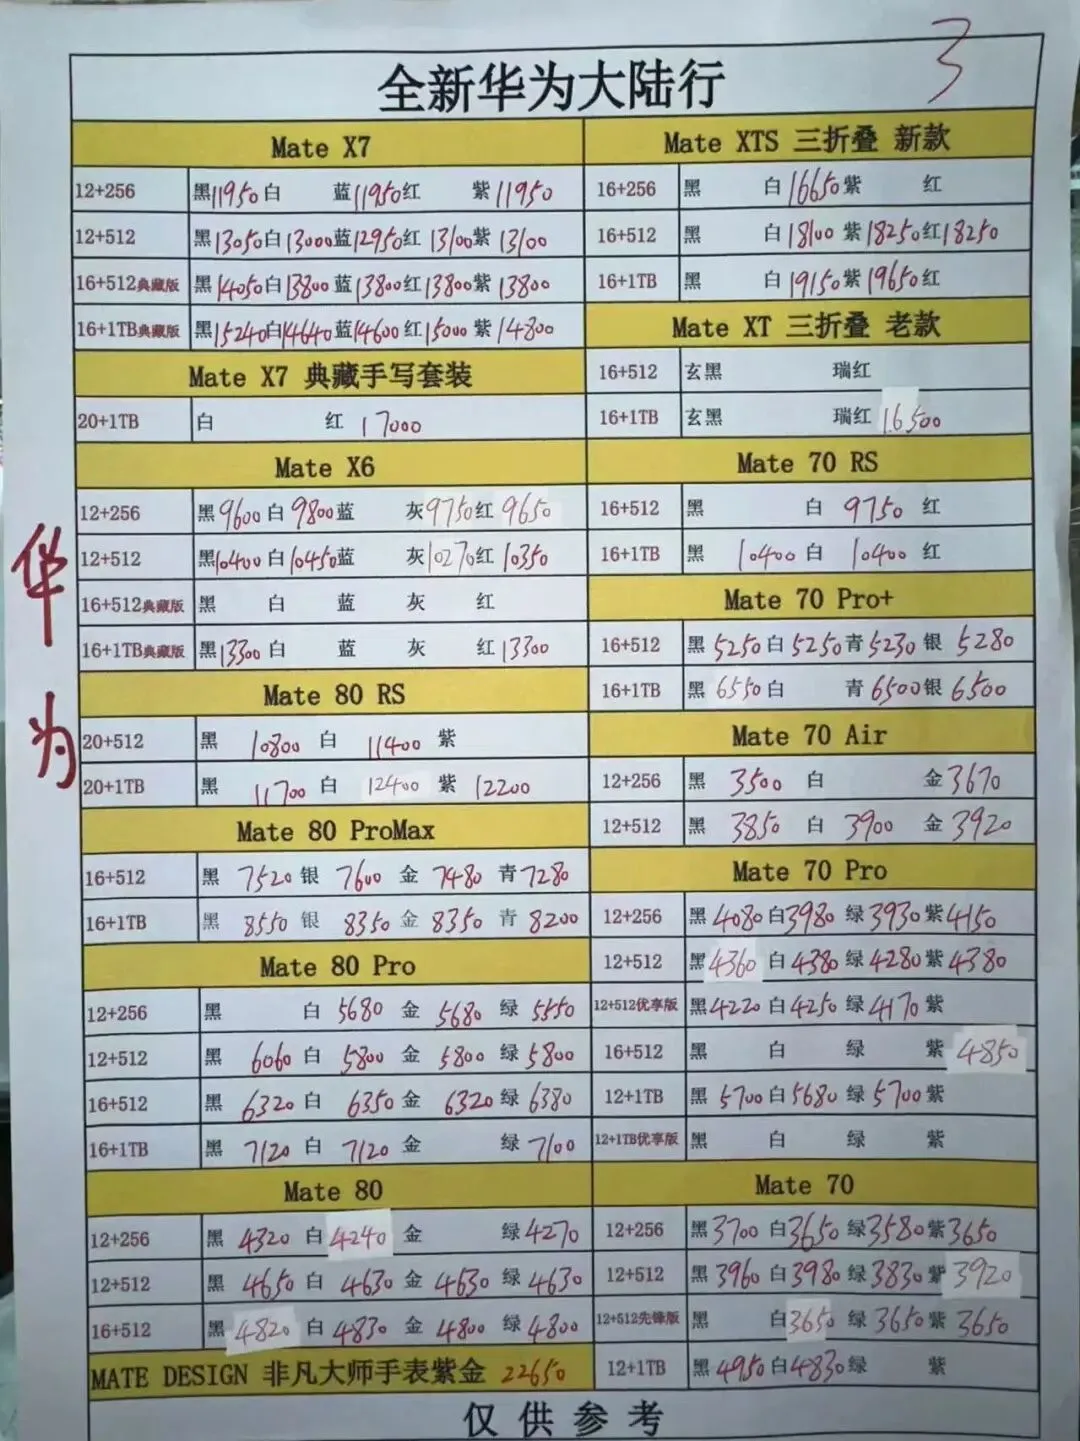 3
全新华为大陆行
华为
Mate X7
12+256 黑11950 白 蓝11950 红 紫11950
12+512 黑13050 白13000 蓝12950 红13100 紫13100
16+512典藏版 黑14050 白13800 蓝13800 红13800 紫13800
16+1TB典藏版 黑15240 白14640 蓝14600 红15000 紫14800
Mate X7 典藏手写套装
20+1TB 白 红 17000
Mate X6
12+256 黑9600 白9800 蓝 灰9750 红9650
12+512 黑10400 白10450 蓝 灰10270 红10350
16+512典藏版 黑 白 蓝 灰 红
16+1TB典藏版 黑13300 白 蓝 灰 红13300
Mate 80 RS
20+512 黑 10800 白 11400 紫
20+1TB 黑 11700 白 12400 紫 12200
Mate 80 ProMax
16+512 黑 7520 银 7600 金 7480 青7280
16+1TB 黑 8550 银 8350 金 8350 青 8200
Mate 80 Pro
12+256 黑 白 5680 金 5680 绿 5550
12+512 黑 6060 白 5800 金 5800 绿5800
16+512 黑 6320 白 6350 金 6320 绿6380
16+1TB 黑 7120 白 7120 金 绿7100
Mate 80
12+256 黑 4320 白4240 金 绿4270
12+512 黑 4650 白 4630 金 4630 绿4630
16+512 黑4820 白 4830 金 4800 绿4800
MATE DESIGN 非凡大师手表紫金 22650
Mate XTS 三折叠 新款
16+256 黑 白16650 紫 红
16+512 黑 白18100 紫18250 红18250
16+1TB 黑 白19150 紫19650 红
Mate XT 三折叠 老款
16+512 玄黑 瑞红
16+1TB 玄黑 瑞红 16500
Mate 70 RS
16+512 黑 白 9750 红
16+1TB 黑 10400 白 10400 红
Mate 70 Pro+
16+512 黑5250 白5250 青5230 银 5280
16+1TB 黑 6550 白 青 6500 银 6500
Mate 70 Air
12+256 黑 3500 白 金3670
12+512 黑 3850 白 3900 金 3920
Mate 70 Pro
12+256 黑4080 白3980 绿3930 紫4150
12+512 黑4360 白4380 绿4280 紫4380
12+512优享版 黑4220 白4250 绿4170 紫
16+512 黑 白 绿 紫4850
12+1TB 黑5700 白5680 绿5700 紫
12+1TB优享版 黑 白 绿 紫
Mate 70
12+256 黑3700 白3650 绿3580 紫3650
12+512 黑3960 白3980 绿3830 紫3920
12+512先锋版 黑 白3650 绿3650 紫3650
12+1TB 黑4950 白4830 绿 紫
仅供参考